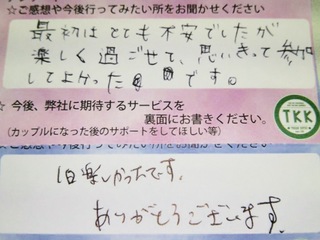 ☆ご感想や今後行ってみたい所をお聞かせください
最初はとても不安でしたが
楽しく過ごせて、思いきって参加
してよかったです。
☆ 今後、弊社に期待するサービスを
裏面にお書きください。
(カップルになった後のサポートをしてほしい等)
TKK
ご感想や今後行ってみたい所をお聞かせください
1日楽しかったです。
ありがとうございます。